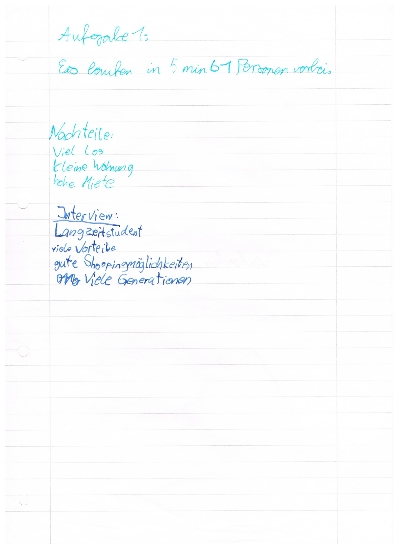 Aufgabe 1:
Es laufen in 5 min 61 Personen vorbei.
Nachteile:
Viel los
kleine Wohnung
hohe Miete
Interview:
Langzeitstudent
viele Vorteile
gute Shoppingmöglichkeiten
Viele Generationen